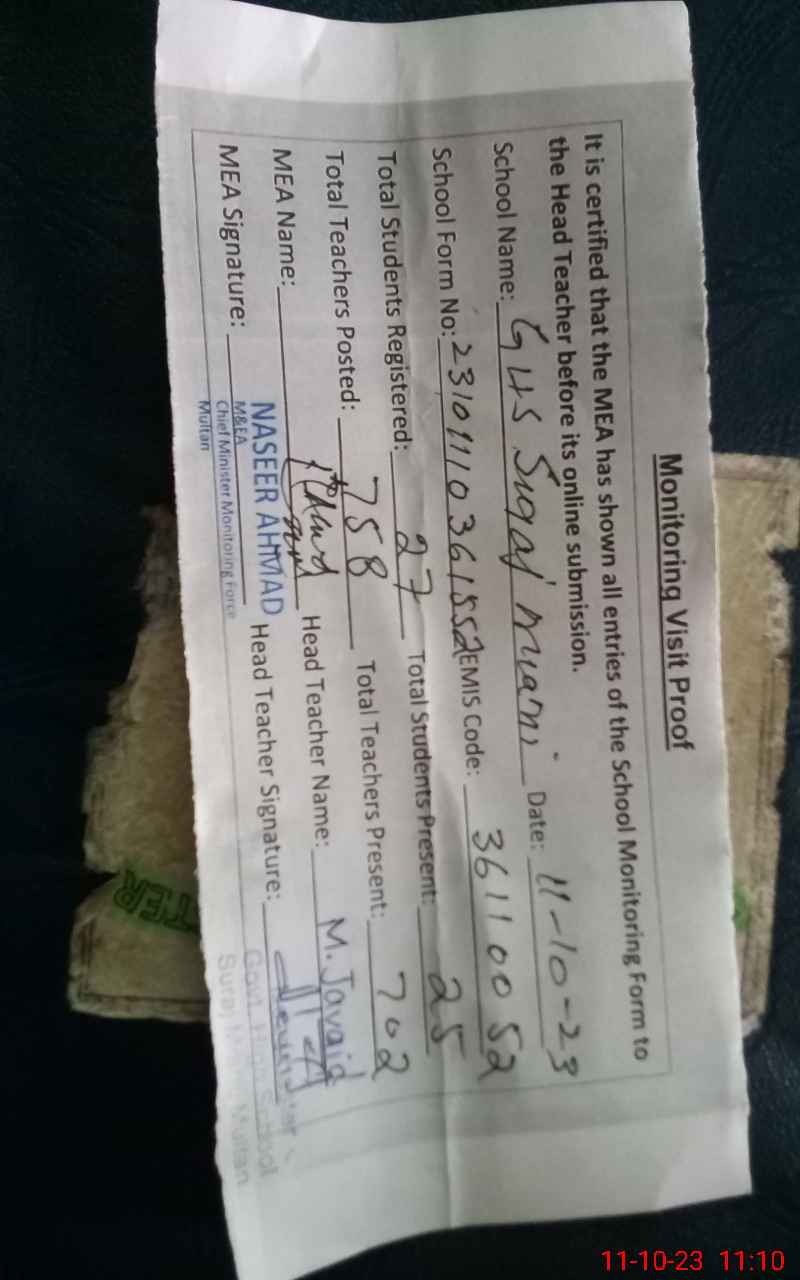 Monitoring Visit Proof
It is certified that the MEA has shown all entries of the School Monitoring Form to
the Head Teacher before its online submission.
School Name: GHS Suraj miani Date: 11-10-23
School Form No: EMIS Code: 36110052
Total Students Registered: 27 Total Students Present: 25
Total Teachers Posted: 758 Total Teachers Present: 702
MEA Name: Head Teacher Name: M. Javaid
MEA Signature: Head Teacher Signature:
NASEER AHMAD
M&EA
Chief Minister Monitoring Force
Multan
Govt. High School
Suraj Multan
TER
11-10-23 11:10